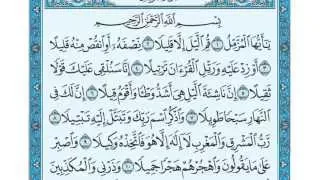 بِسْمِ اللَّهِ الرَّحْمَٰنِ الرَّحِيمِ
يَا أَيُّهَا الْمُزَّمِّلُ ١ قُمِ اللَّيْلَ إِلَّا قَلِيلًا ٢ نِّصْفَهُ أَوِ انقُصْ مِنْهُ قَلِيلًا
٣ أَوْ زِدْ عَلَيْهِ وَرَتِّلِ الْقُرْآنَ تَرْتِيلًا ٤ إِنَّا سَنُلْقِي عَلَيْكَ قَوْلًا
ثَقِيلًا ٥ إِنَّ نَاشِئَةَ اللَّيْلِ هِيَ أَشَدُّ وَطْئًا وَأَقْوَمُ قِيلًا ٦ إِنَّ لَكَ فِي
النَّهَارِ سَبْحًا طَوِيلًا ٧ وَاذْكُرِ اسْمَ رَبِّكَ وَتَبَتَّلْ إِلَيْهِ تَبْتِيلًا ٨
رَّبُّ الْمَشْرِقِ وَالْمَغْرِبِ لَا إِلَٰهَ إِلَّا هُوَ فَاتَّخِذْهُ وَكِيلًا ٩ وَاصْبِرْ
عَلَىٰ مَا يَقُولُونَ وَاهْجُرْهُمْ هَجْرًا جَمِيلًا ١٠ وَذَرْنِي وَالْمُكَذِّبِينَ